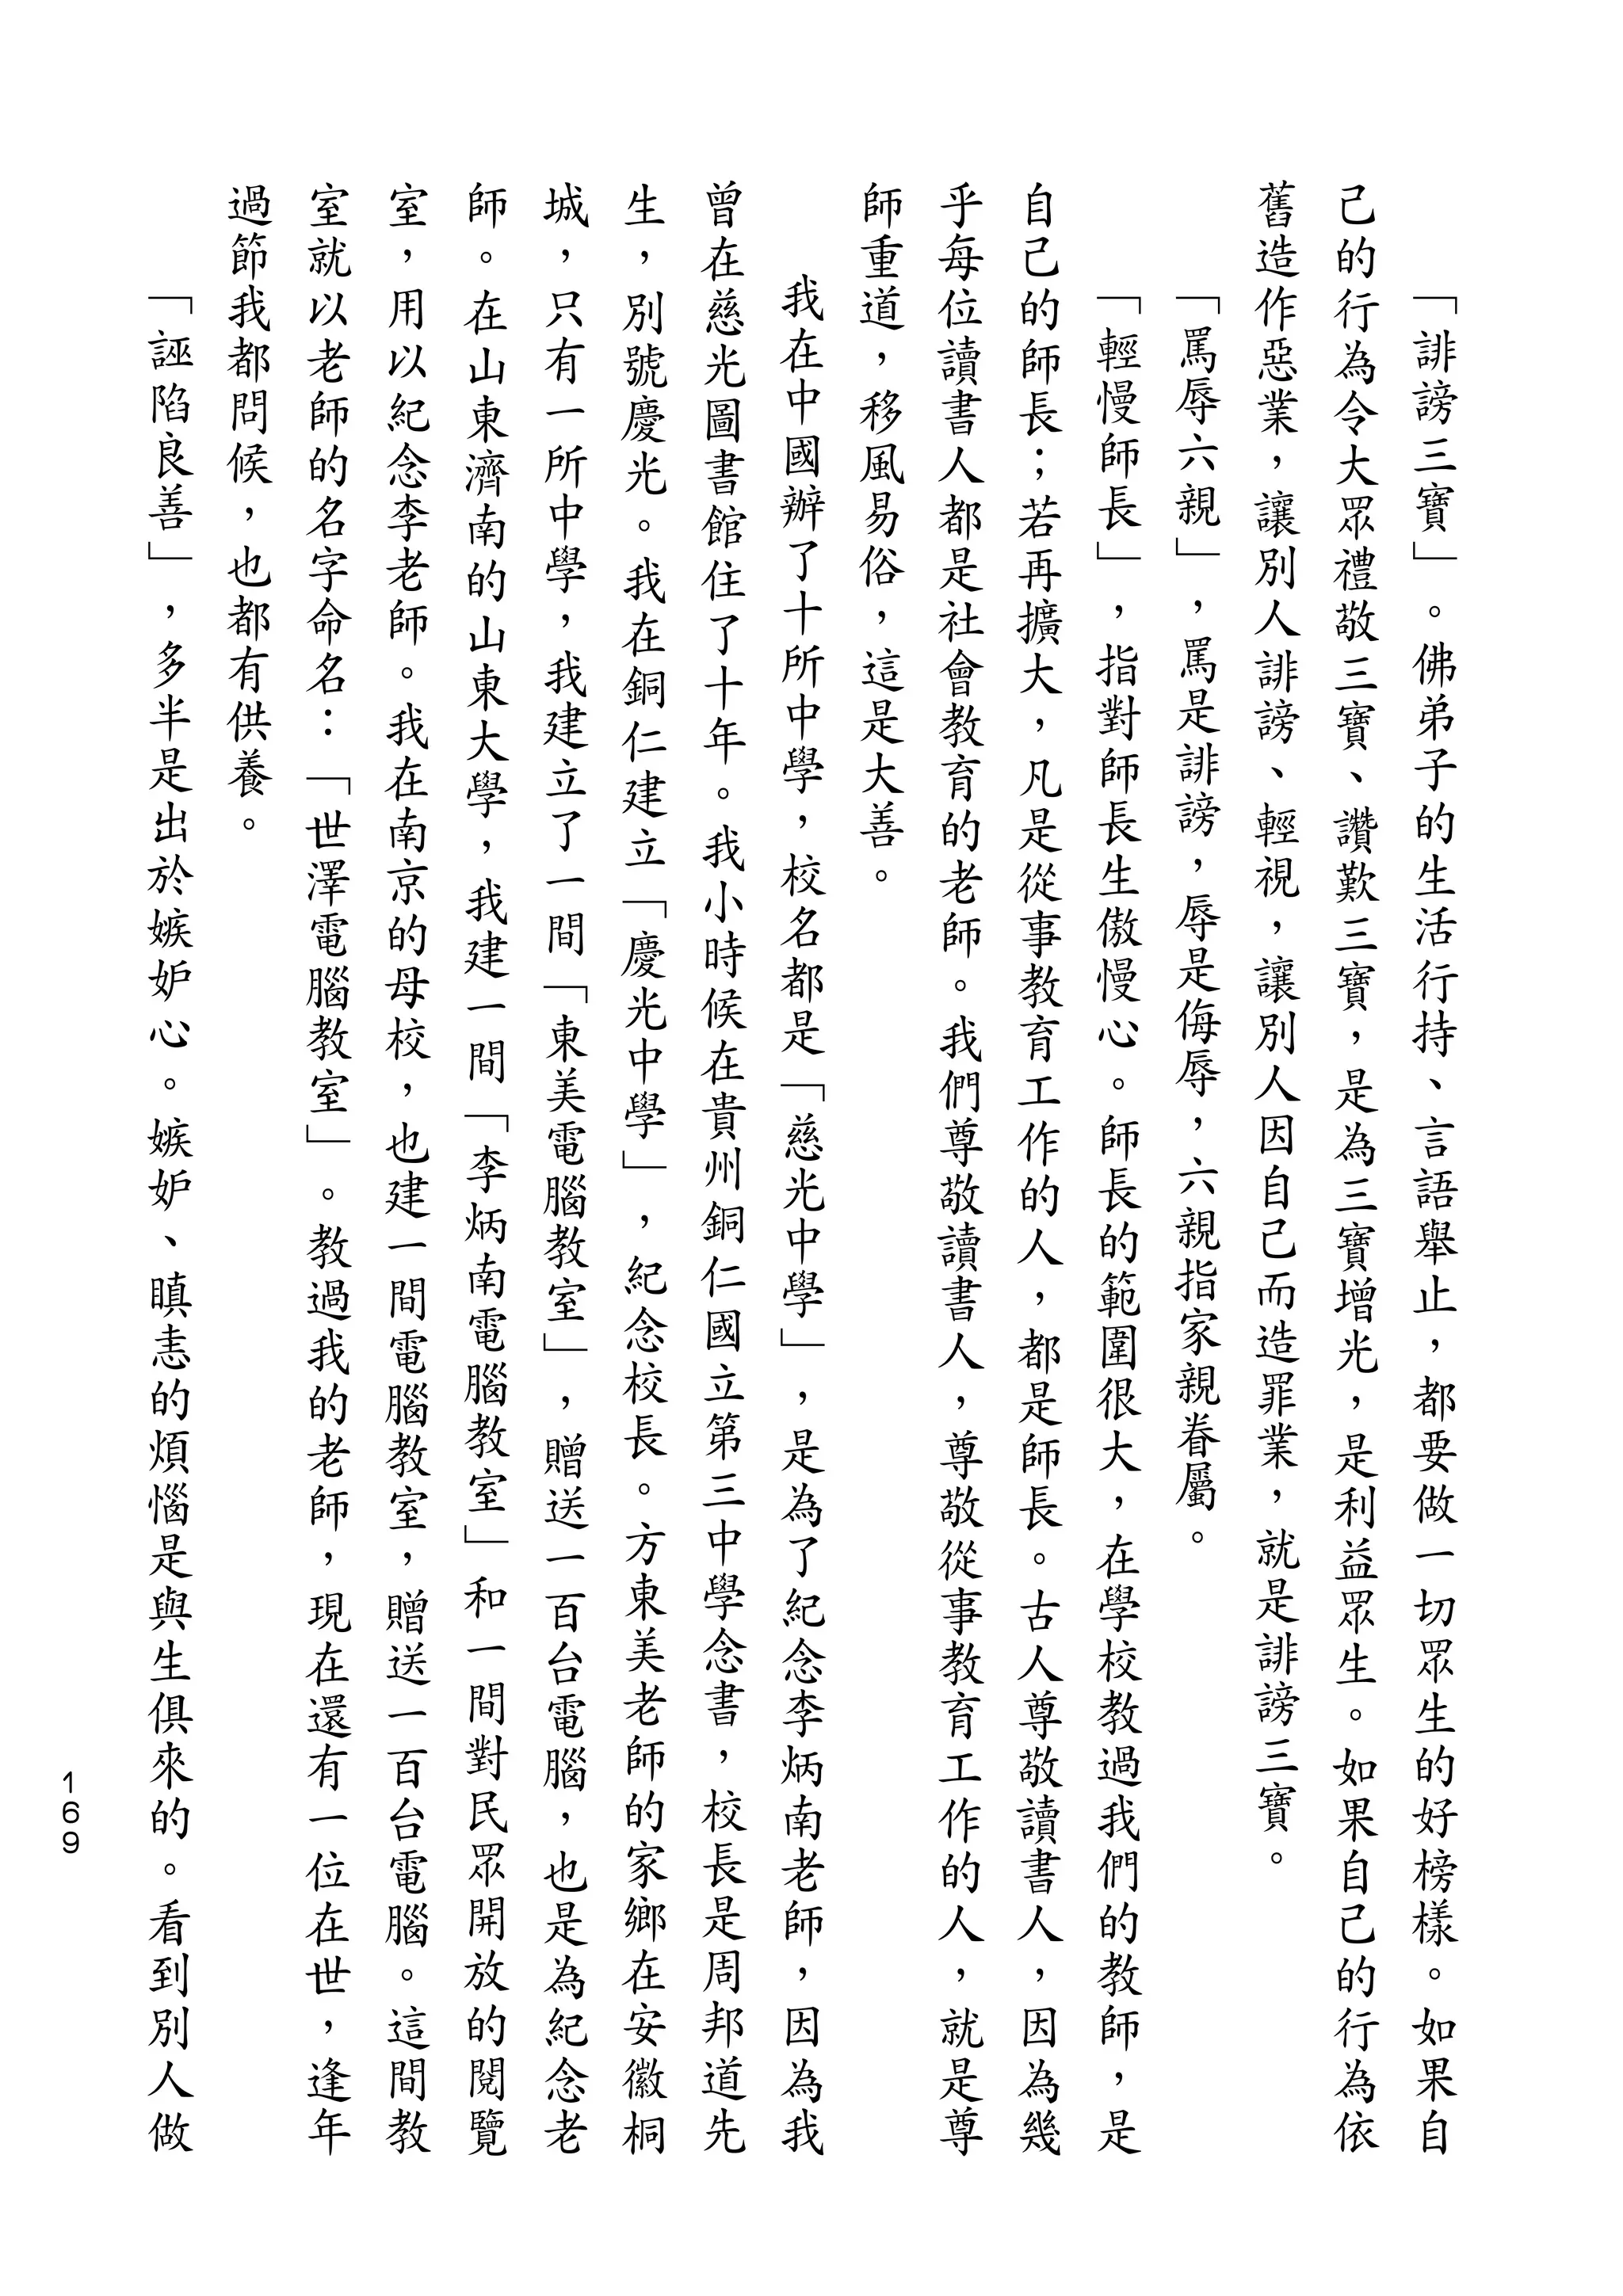 「誹謗三寶」。佛弟子的生活行持、言語舉止，都要做一切眾生的好榜樣。如果自
己的行為令大眾禮敬三寶、讚歎三寶，是為三寶增光，是利益眾生。如果自己的行為依
舊造作惡業，讓別人誹謗、輕視，讓別人因自己而造罪業，就是誹謗三寶。
「罵辱六親」，罵是誹謗，辱是侮辱，六親指家親眷屬。
「輕慢師長」，指對師長生傲慢心。師長的範圍很大，在學校教過我們的教師，是
自己的師長；若再擴大，凡是從事教育工作的人，都是師長。古人尊敬讀書人，因為幾
乎每位讀書人都是社會教育的老師。我們尊敬讀書人，尊敬從事教育工作的人，就是尊
師重道，移風易俗，這是大善。
我在中國辦了十所中學，校名都是「慈光中學」，是為了紀念李炳南老師，因為我
曾在慈光圖書館住了十年。我小時候在貴州銅仁國立第三中學念書，校長是周邦道先
生，別號慶光。我在銅仁建立「慶光中學」，紀念校長。方東美老師的家鄉在安徽桐
城，只有一所中學，我建立了一間「東美電腦教室」，贈送一百台電腦，也是為紀念老
師。在山東濟南的山東大學，我建一間「李炳南電腦教室」和一間對民眾開放的閱覽
室，用以紀念李老師。我在南京的母校，也建一間電腦教室，贈送一百台電腦。這間教
室就以老師的名字命名：「世澤電腦教室」。教過我的老師，現在還有一位在世，逢年
過節我都問候，也都有供養。
「誣陷良善」，多半是出於嫉妒心。嫉妒、瞋恚的煩惱是與生俱來的。看到別人做
169